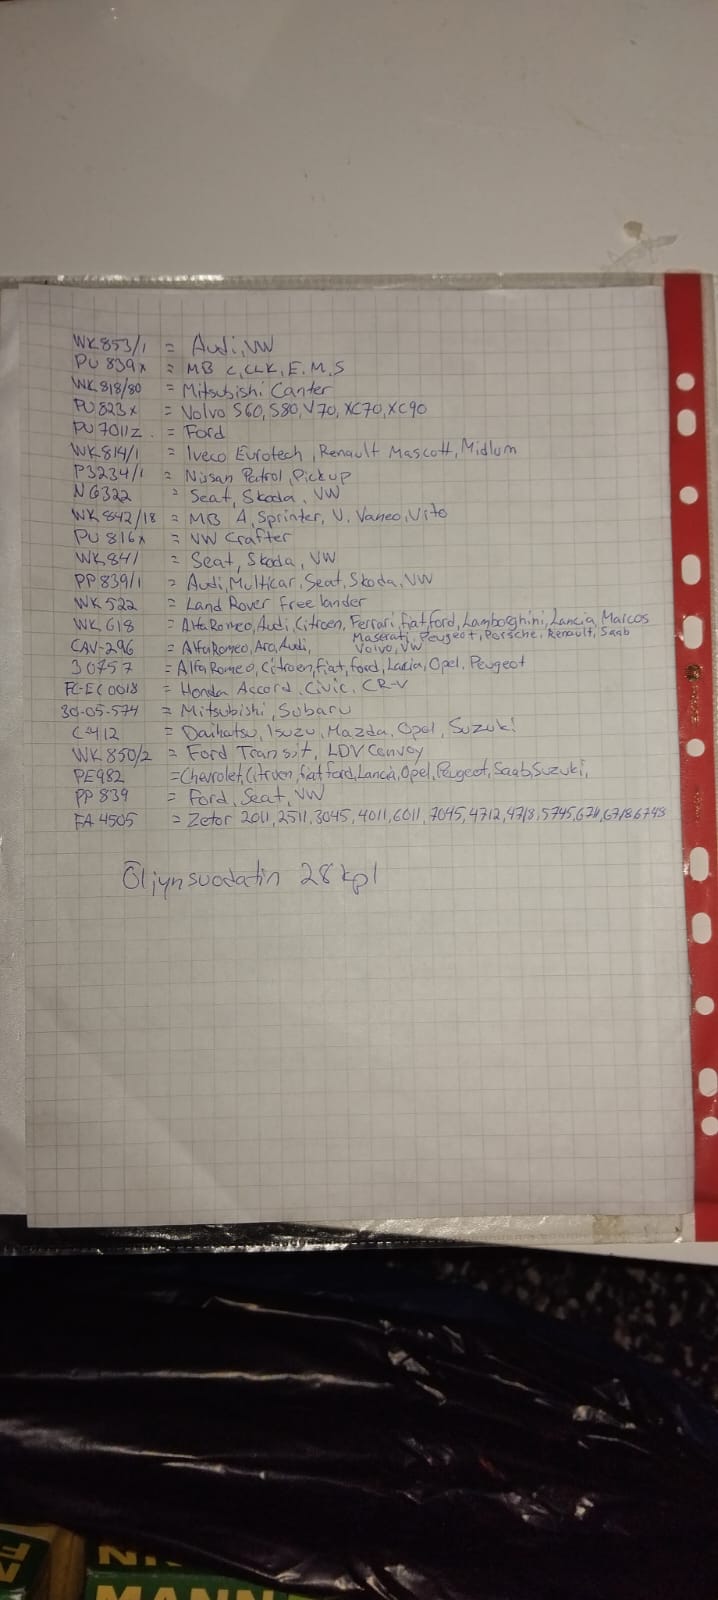 WK853/1 = Audi, VW
PU 839x = MB C, CLK, E, M, S
WK 818/80 = Mitsubishi Canter
PU 823x = Volvo S60, S80, V70, XC70, XC90
PU 7011z = Ford
WK 814/1 = Iveco Eurotech, Renault Mascott, Midlum
P3234/1 = Nissan Patrol, Pickup
NG322 = Seat, Skoda, VW
WK 842/18 = MB A, Sprinter, V, Vaneo, Vito
PU 816x = VW Crafter
WK 841 = Seat, Skoda, VW
PP 839/1 = Audi, Multicar, Seat, Skoda, VW
WK 522 = Land Rover Freelander
WK 618 = Alfa Romeo, Audi, Citroen, Ferrari, fiat ford, Lamborghini, Lancia, Marcos
Maserati, Peugeot, Porsche, Renault, Saab
Volvo, VW
CAV-296 = Alfa Romeo, Aro, Audi,
30757 = Alfa Romeo, Citroen, fiat, ford, Lacia, Opel, Peugeot
FC-EC001S = Honda Accord, Civic, CR-V
30-05-574 = Mitsubishi, Subaru
= Daihatsu, Isuzu, Mazda, Opel, Suzuki
WK 850/2 = Ford Transit, LDV Convoy
PE982 = Chevrolet, Citroen, fiat ford, Lancia, Opel, Peugeot, Saab, Suzuki,
PP 839 = Ford, Seat, VW
FA 4505 = Zetor 2011, 2511, 3045, 4011, 6011, 7045, 4712, 4718, 5745, 6711, 6718, 6748
Öljynsuodatin 28 kpl
MANN